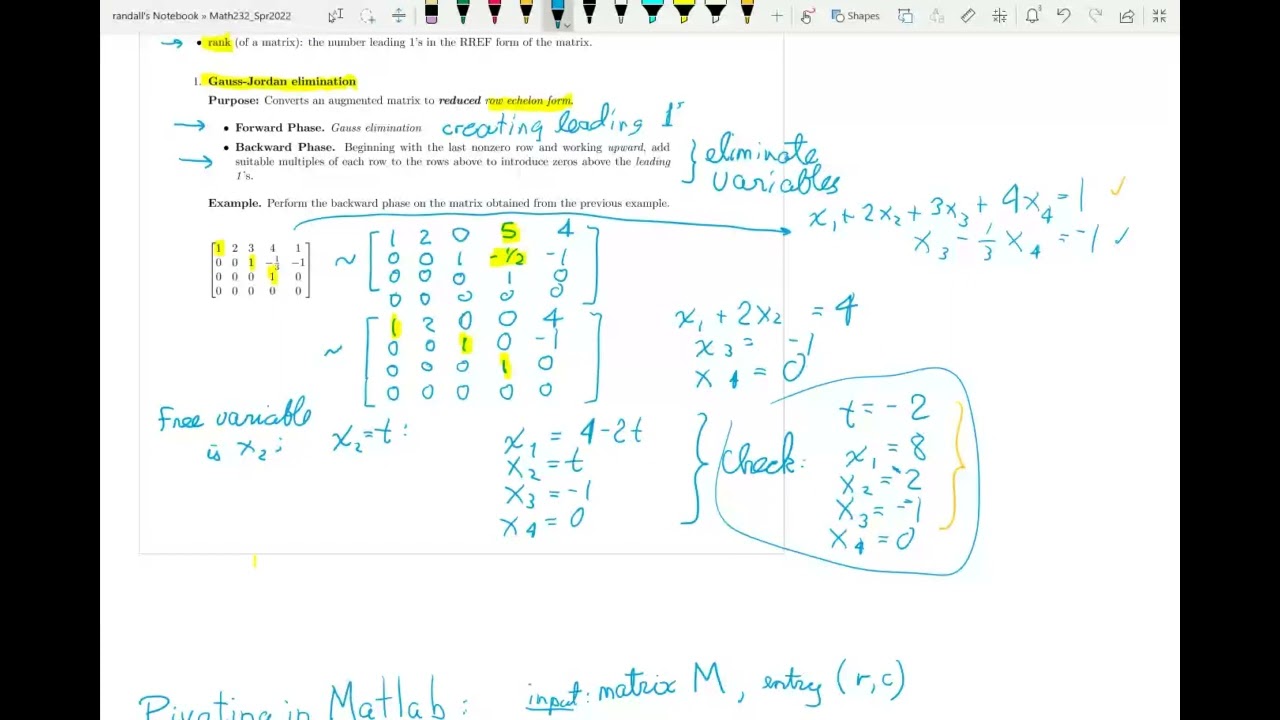 randall's Notebook » Math232_Spr2022
Shapes
• rank (of a matrix): the number leading 1's in the RREF form of the matrix.
1. Gauss-Jordan elimination
Purpose: Converts an augmented matrix to reduced row echelon form.
• Forward Phase. Gauss elimination creating leading 1's
• Backward Phase. Beginning with the last nonzero row and working upward, add
suitable multiples of each row to the rows above to introduce zeros above the leading
1's.
} eliminate
variables
Example. Perform the backward phase on the matrix obtained from the previous example.
x₁ + 2x₂ + 3x₃ + 4x₄ = 1 ✓
x₃ - 1/3 x₄ = -1 ✓
1 2 3 4 1
0 0 1 -1/3 -1
0 0 0 1 0
0 0 0 0 0
~ 1 2 0 5 4
0 0 1 -1/2 -1
0 0 0 1 0
0 0 0 0 0
~ 1 2 0 0 4
0 0 1 0 -1
0 0 0 1 0
0 0 0 0 0
x₁ + 2x₂ = 4
x₃ = -1
x₄ = 0
Free variable
is x₂ ;
x₂ = t :
x₁ = 4-2t
x₂ = t
x₃ = -1
x₄ = 0
Check:
t = -2
x₁ = 8
x₂ = -2
x₃ = -1
x₄ = 0
Pivoting in Matlab : input: matrix M, entry (r,c)